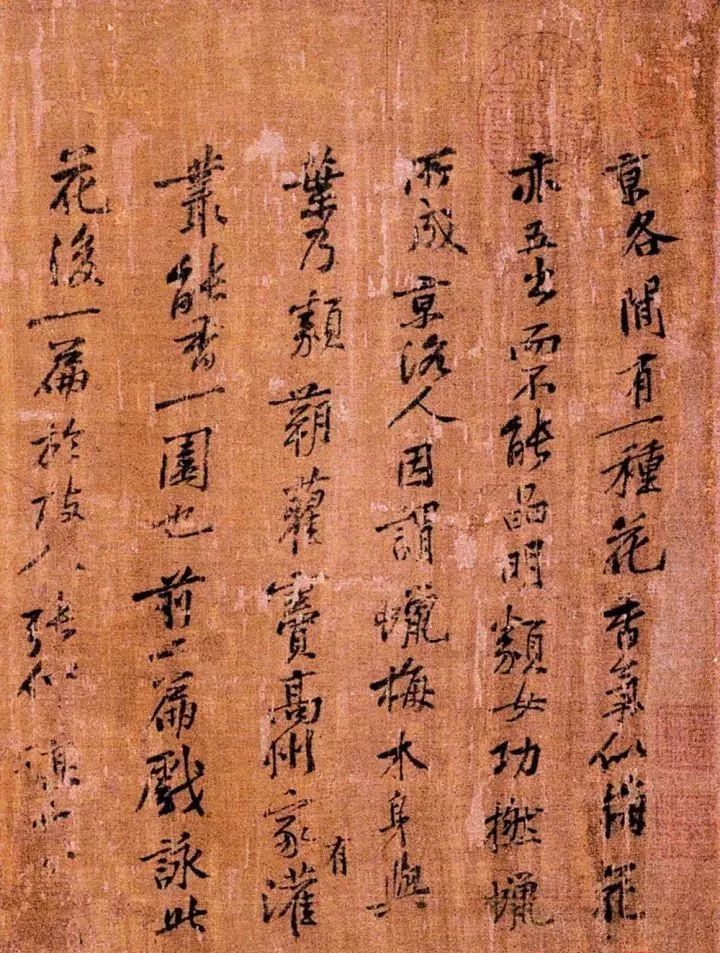 京各間有一種花香氣似梅花
亦五出而不能晶明類女功撚蠟
所成京洛人因謂蠟梅木身與
葉乃類蒴藋竇高州家有灌
叢能香一園也前二篇戲詠此
花後一篇於